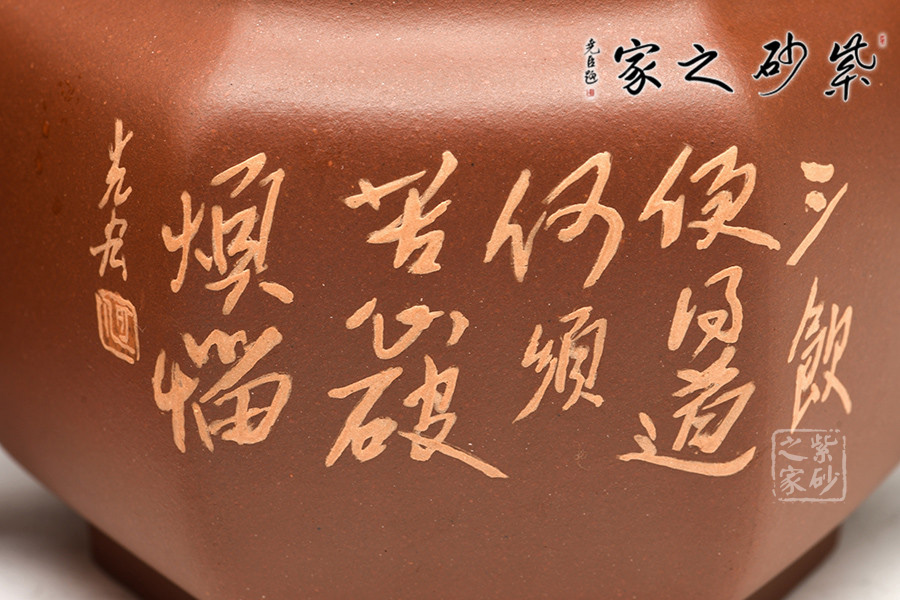 紫砂之家
三飲
便得道
何須
苦心破
煩惱
紫砂
之家